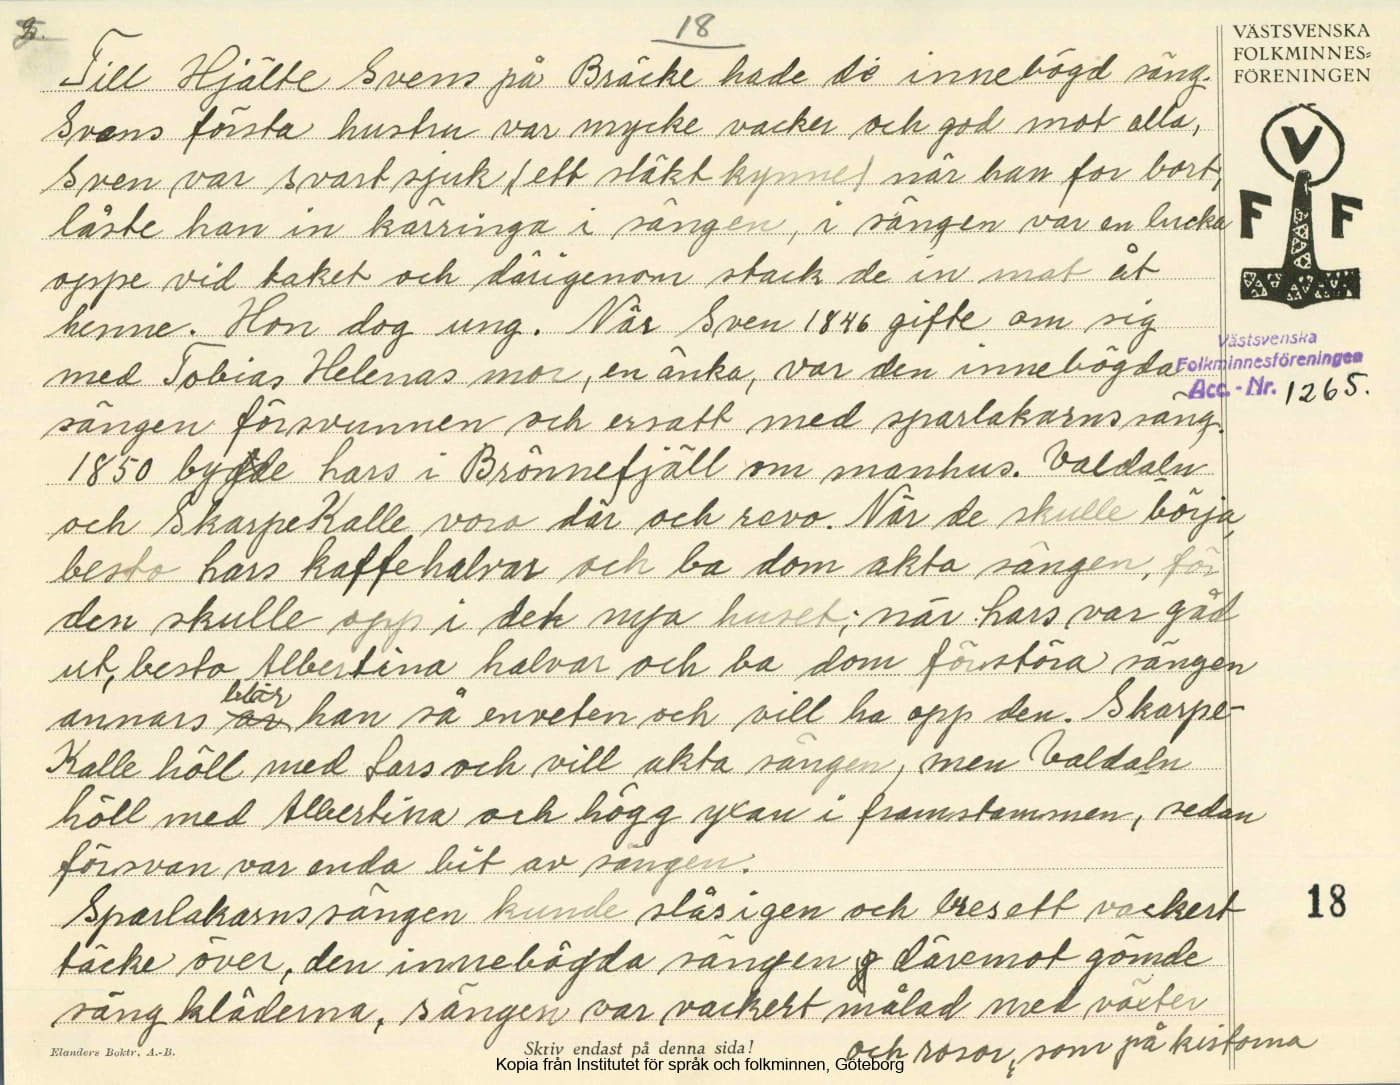 18
VÄSTSVENSKA
FOLKMINNES=
FÖRENINGEN
Till Hjälte Svens på Bräcke hade de innebögd säng.
Svens första hustru var mycke vacker och god mot alla,
Sven var svart sjuk (ett släkt kynne) när han for bort,
låste han in kärringa i sängen, i sängen var en lucka
oppe vid taket och därigenom stack de in mat åt
henne. Hon dog ung. När Sven 1846 gifte om sig
med Tobias Helenas mor, en änka, var den innebögda
sängen försvunnen och ersatt med sparlakarnssäng.
1850 bygde Lars i Brönnefjäll om manhus. Valdaln
och SkarpeKalle vora där och revo. När de skulle börja,
besto Lars kaffehalvar och ba dom akta sängen, för
den skulle opp i det nya huset; när Lars var gåd
ut, besto Albertina halvar och ba dom förstöra sängen
annars blir han så enveten och vill ha opp den. Skarpe-
Kalle höll med Lars och vill akta sängen, men Valdaln
höll med Albertina och högg yxan i framstammen, sedan
försvan var enda bit av sängen.
Sparlakarnssängen kunde slås igen och bres ett vackert
täcke över, den innebögda sängen däremot gömde
sängkläderna, sängen var vackert målad med växter
och rosor, som på kistorna
V
F F
Västsvenska
Folkminnesföreningen
Acc.-Nr. 1265.
18
Elanders Boktr. A.-B.
Skriv endast på denna sida!
Kopia från Institutet för språk och folkminnen, Göteborg